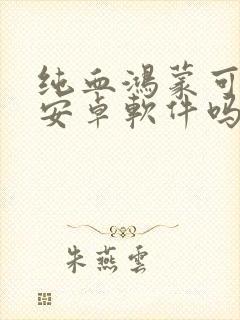 纯血鸿蒙可
安卓軟件吗
朱燕雲